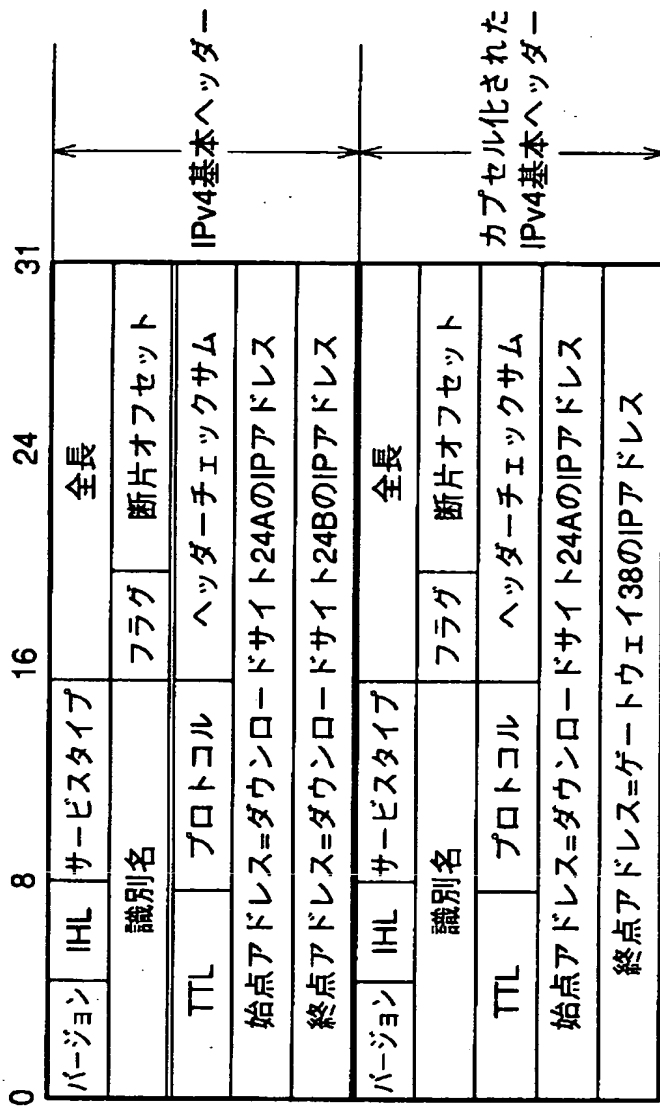 0 8 16 24 31
バージョン IHL サービスタイプ 全長
識別名 フラグ 断片オフセット
TTL プロトコル ヘッダーチェックサム
始点アドレス=ダウンロードサイト24AのIPアドレス
終点アドレス=ダウンロードサイト24BのIPアドレス
IPv4基本ヘッダー
バージョン IHL サービスタイプ 全長
識別名 フラグ 断片オフセット
TTL プロトコル ヘッダーチェックサム
始点アドレス=ダウンロードサイト24AのIPアドレス
終点アドレス=ゲートウェイ38のIPアドレス
カプセル化された
IPv4基本ヘッダー